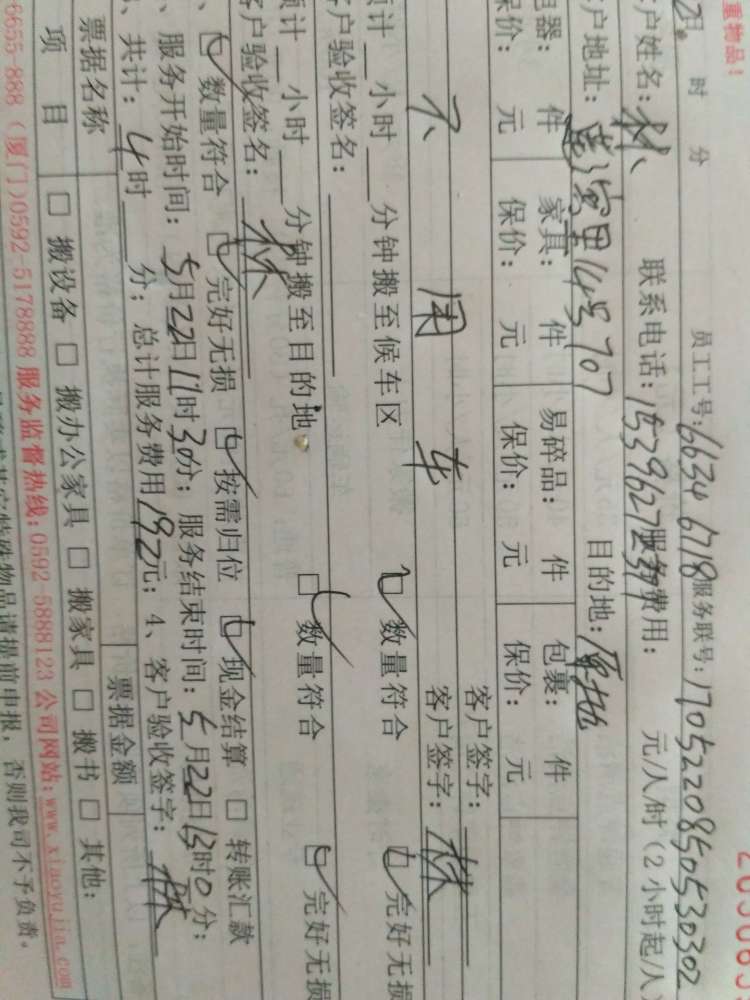 重物品！
时 分 员工工号：6634 6718 服务联号：170522085053030 2
户姓名：林 联系电话：服务费用： 元/人/时（2小时起/人
户地址：莲 14号707 目的地：原地
器： 件 家具： 件 易碎品： 件 包裹： 件
保价： 元 保价： 元 保价： 元 保价： 元
客户签字：
不 用 车 客户签字：林
计 小时 分钟搬至候车区 数量符合 完好无损
户验收签名：
计 小时 分钟搬至目的地。 数量符合 完好无损
客户验收签名：林
数量符合 完好无损 按需归位 现金结算 转账汇款
、服务开始时间：5月22日11时30分；服务结束时间：5月22日15时0分；
、共计：4时 分；总计服务费用192元；4、客户验收签字：林
票据名称 票据金额
项 目 搬设备 搬办公家具 搬家具 搬书 其他：
6655-888（厦门）0592-5178888 服务监督热线：0592 5888123 公司网站：www.xiaoyujia.com
特殊物品请提前申报，否则我司不予负责。